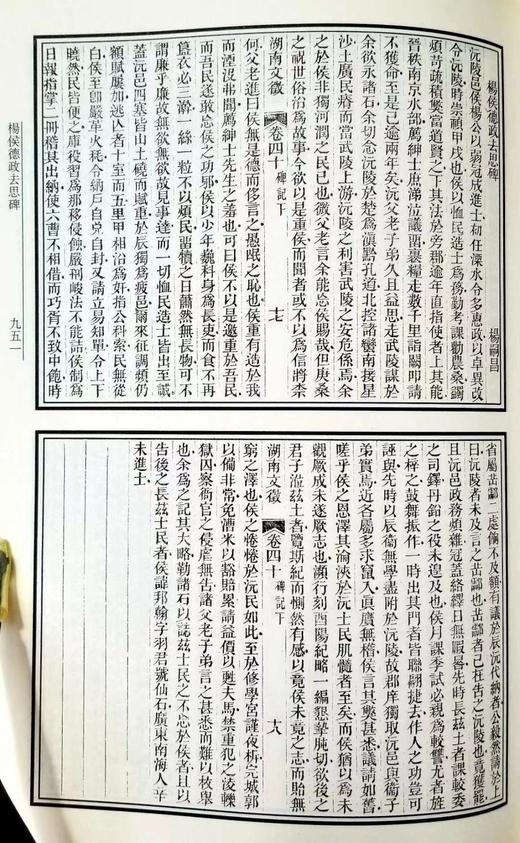 楊侯德政去思碑 楊嗣昌
沅陵邑侯楊公以弱冠成進士初任溧水令多惠政以卓異改
令沅陵時崇禎甲戌也侯以恤民造士爲務勤考課勸農桑蠲
煩苛疏積弊當道賢之下其法於旁郡逾年直指使者上其能
晉秩南京水部薦紳士庶涕泣議留裹糧走數千里詣闕叩請
不獲命至是已逾兩年矣沅父老子弟久且益思走武陵謀於
余欲永諸石余切念沅陵於楚爲滇黔孔道北控諸蠻南接星
沙土廣民瘠而當武陵上游沅陵之利害武陵之安危係焉余
之於侯非獨河潤之民已也微父老言余能忘侯賜哉但庚桑
之祝世俗沿爲故事今欲以是重侯而聞者或不以爲信將柰
湖南文徵 卷四十 碑記下 十七
何父老進曰侯無是德而侈言之愚氓之恥也侯重有造於我
而湮沒弗聞薦紳士先生之羞也可曰侯不以是邀重於吾民
而吾民遂敢忘侯之功邪侯以少年巍科身爲長吏而食不再
簋衣必三澣一絲一粒不以煩民罷犢之日蕭然無長物可不
謂廉乎廉故無欲無欲故見事達而一切恤民造士皆出至誠
蓋沅邑四塞皆山土磽而賦重於辰獨爲疲邑爾來征調頻仍
額賦屢加逃亾者十室而五里甲相沿爲奸指公科索民無從
白侯至卽嚴革火秏令納戶自兌自封又請立易知單令上下
曉然民皆便之庫役習爲那移侵蝕嚴刑峻法不能詰侯制爲
日報指掌二冊稽其出納使六曹不相借而巧胥不致中飽時
省屬岳酃二處偏不及額有議於辰沅代納者公毅然請於上
曰沅陵者未及言之岳酃也岳酃者已在告之沅陵也竟獲罷
且沅邑政務頗雜冠蓋絡繹日無暇晷先時長茲土者課較委
之司鐸丹鉛之役未遑及也侯月課季試必親爲較讐尤者旌
之梓之鼓舞振作一時出其門者皆聯翩捷去作人之功豈可
誣與先時以辰衞無學盡附於沅陵故郡庠獨取沅邑與衞子
弟實爲近各屬多求竄入眞贗無稽侯言其弊甚悉議請如舊
嗟乎侯之恩澤其淪浹於沅士民肌髓者至矣而侯猶以爲未
觀厥成未遂厥志也瀕行刻酉陽紀略一編懇摯肫切欲後之
君子涖茲土者覽斯紀而惻然有感以竟侯未竟之志而貽無
湖南文徵 卷四十 碑記下 十八
窮之澤也侯之惓惓於沅民如此至於修學宮謹夜柝完城郭
以備非常免漕米以豁賠累請益價以甦夫馬禁重犯之凌轢
獄囚察衙官之侵虐無告諸父老子弟言之甚悉而難以枚舉
也余爲之記其大略勒諸石以誌茲士民之不忘於侯者且以
告後之長茲士民者侯諱邦翰字羽君號仙石廣東南海人辛
未進士
楊侯德政去思碑
九五一